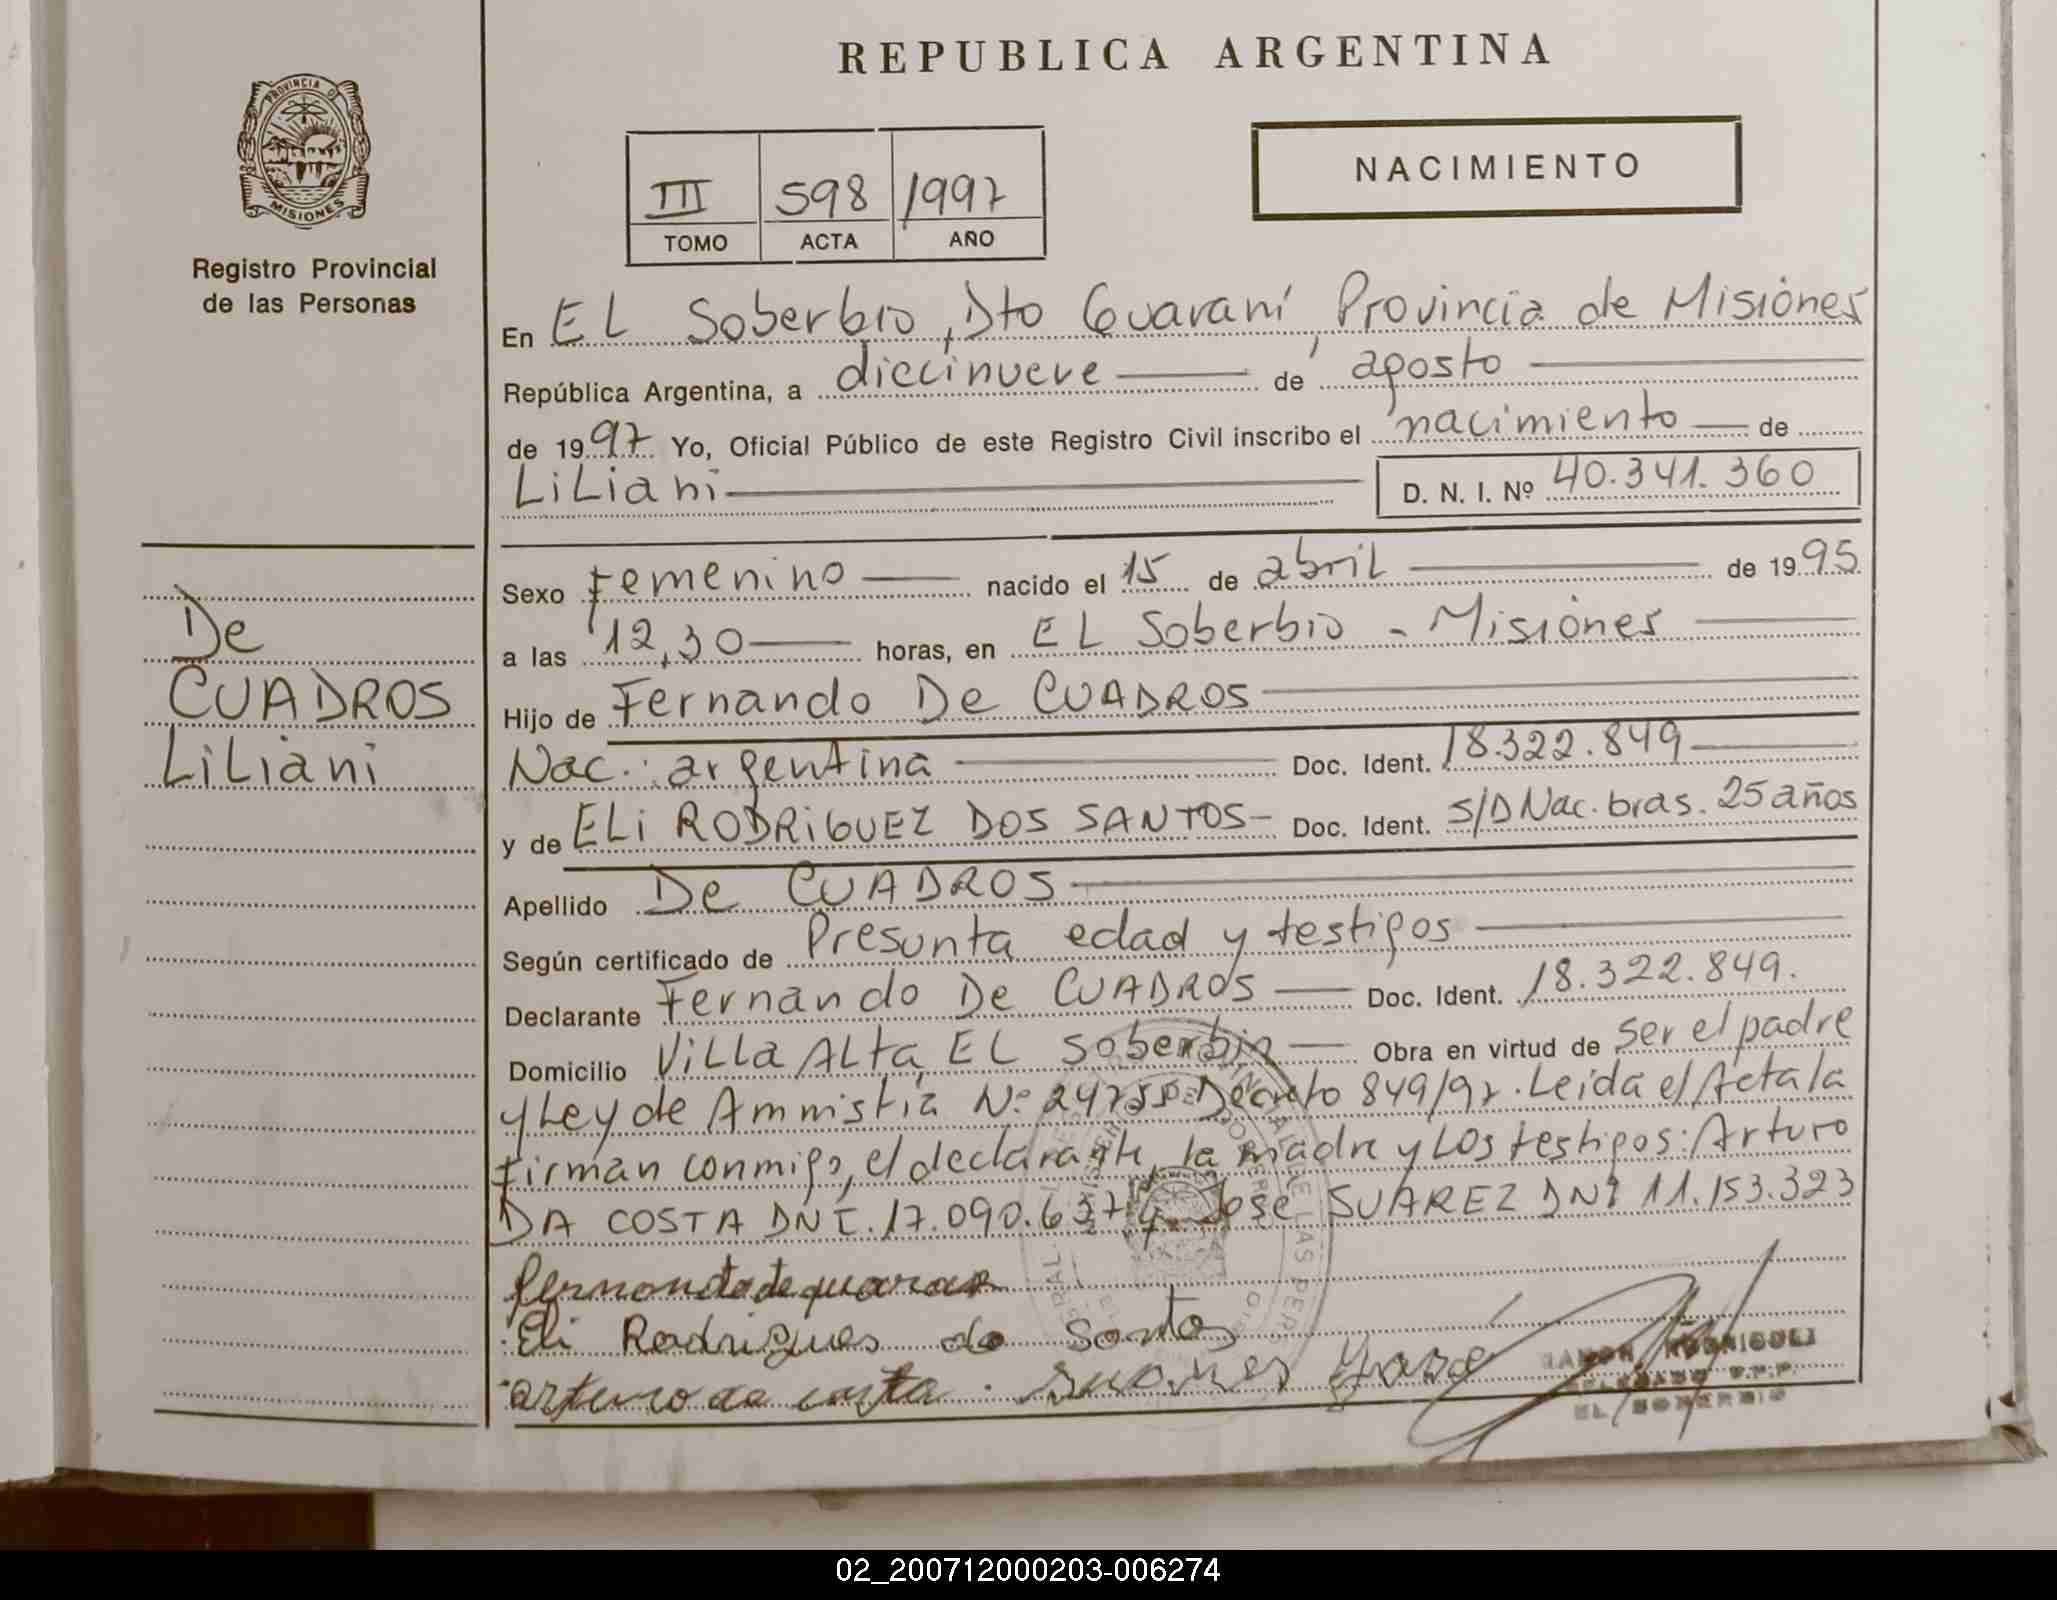 REPUBLICA ARGENTINA
PROVINCIA D
MISIONES
Registro Provincial
de las Personas
III 598 1997
TOMO ACTA AÑO
NACIMIENTO
En EL Soberbio, Dto Guaraní, Provincia de Misiones
República Argentina, a diecinueve de agosto
de 1997 Yo, Oficial Público de este Registro Civil inscribo el nacimiento de
LiLiani D. N. I. Nº 40.341.360
Sexo Femenino nacido el 15 de abril de 1995
a las 12,30 horas, en EL Soberbio - Misiones
Hijo de Fernando De CUADROS
Nac.: argentina Doc. Ident. 18.322.849
y de ELi RODRiGUEZ DOS SANTOS Doc. Ident. S/D Nac. bras. 25 años
Apellido De CUADROS
Según certificado de Presunta edad y testigos
Declarante Fernando De CUADROS Doc. Ident. 18.322.849.
Domicilio Villa Alta, EL Soberbio Obra en virtud de ser el padre
y Ley de Amnistía Nº Decreto 849/97. Leida el Acta la
firman conmigo, el declarante, la madre y Los testigos: Arturo
DA COSTA DNI. 17.090. José SUAREZ DNI 11.153.323
De
CUADROS
LiLiani
Eli Rodrigues do Santos
arturo da costa. suares José
RAMON RODRIGUEZ
DELEGADO R.P.P.
EL SOBERBIO
02_200712000203-006274